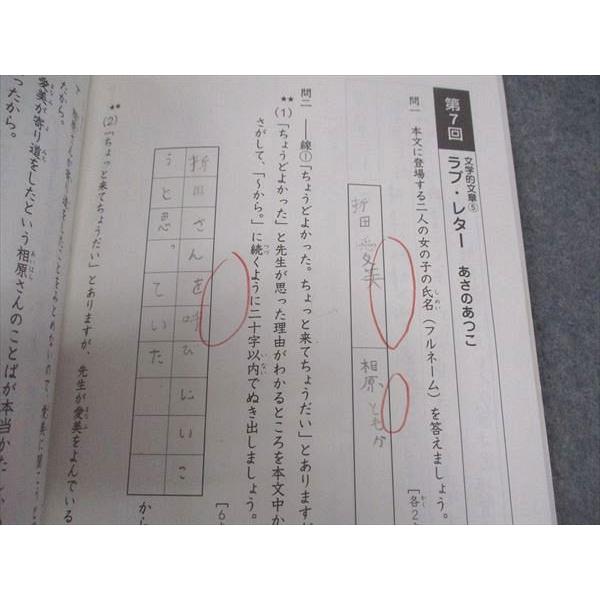 第7回
文学的文章⑤
ラブ・レター あさのあつこ
問一 本文に登場する二人の女の子の氏名（フルネーム）を答えましょう。
しめい
[各2
折田 愛美
相原 ともか
問二 ――線①「ちょうどよかった。ちょっと来てちょうだい」とありますが
★★
(1)「ちょうどよかった」と先生が思った理由がわかるところを本文中か
さがして、「〜から。」に続くように二十字以内でぬき出しましょう。
つづ
いない
[6
折田さんを呼びにいこ
うと思っていた
から
★★
(2)「ちょっと来てちょうだい」とありますが、先生が愛美をよんでいる
まなみ
たから。
愛美が寄り道をしたという相原さんのことばが本当かた
まなみ
あいはら
ったから。